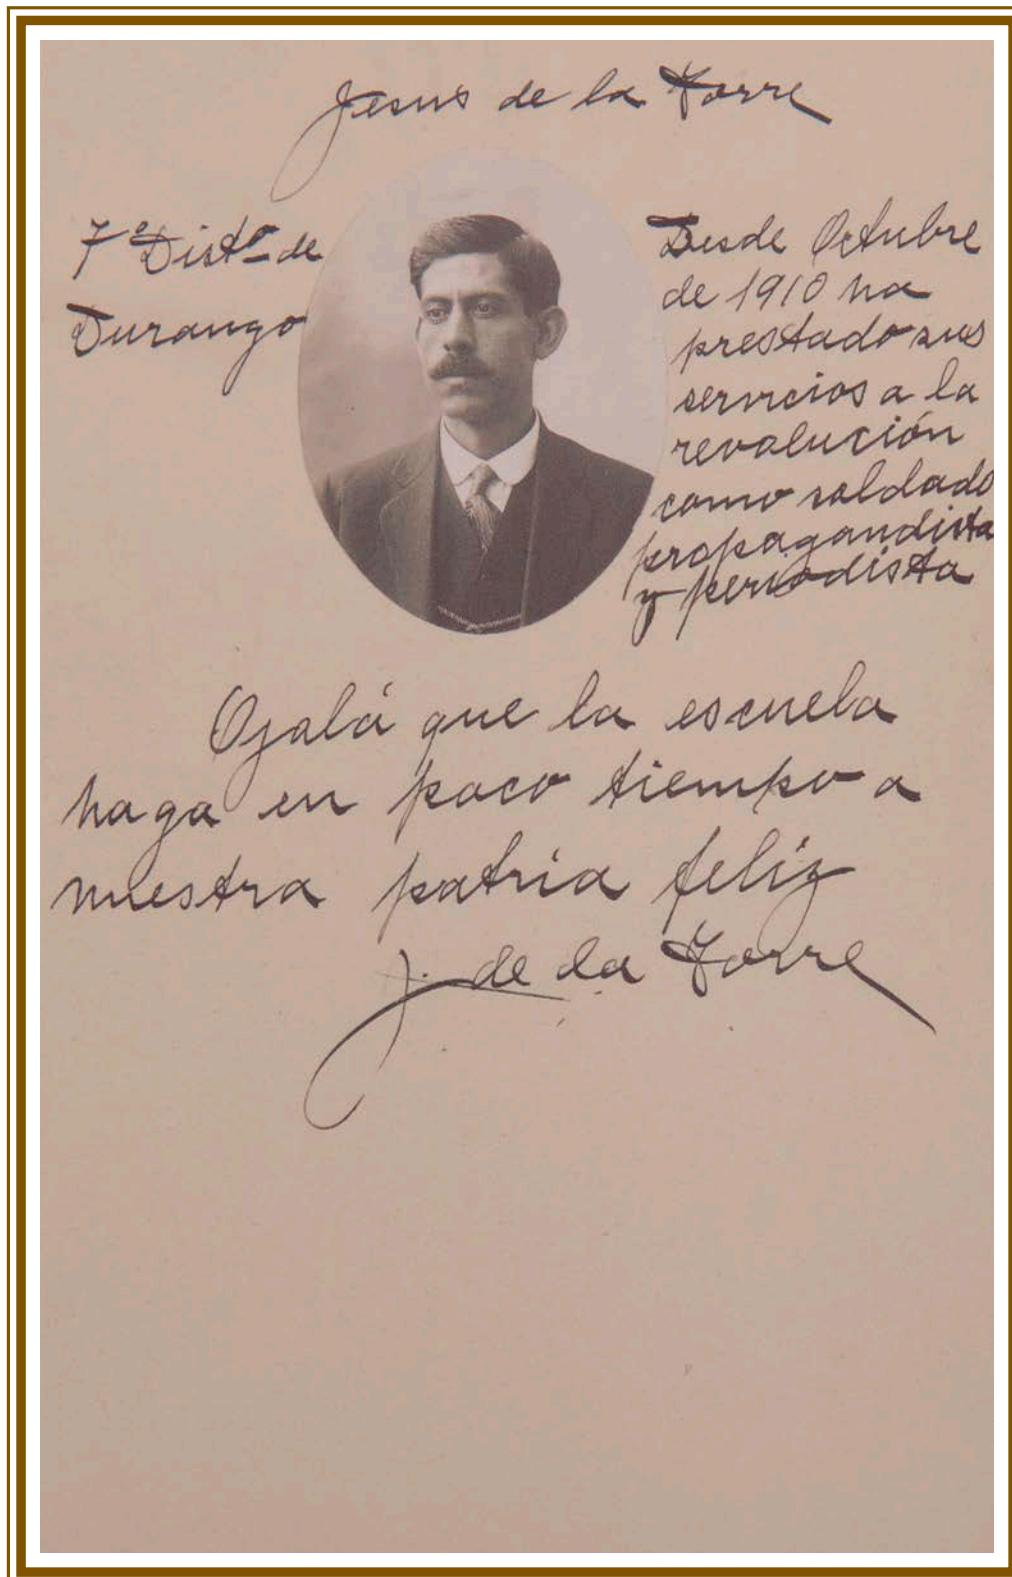 Jesus de la Torre
7º Distº de
Durango
Desde Octubre
de 1910 ha
prestado sus
servicios a la
revolución
como soldado
propagandista
y periodista
Ojalá que la escuela
haga en poco tiempo a
nuestra patria feliz
J. de la Torre